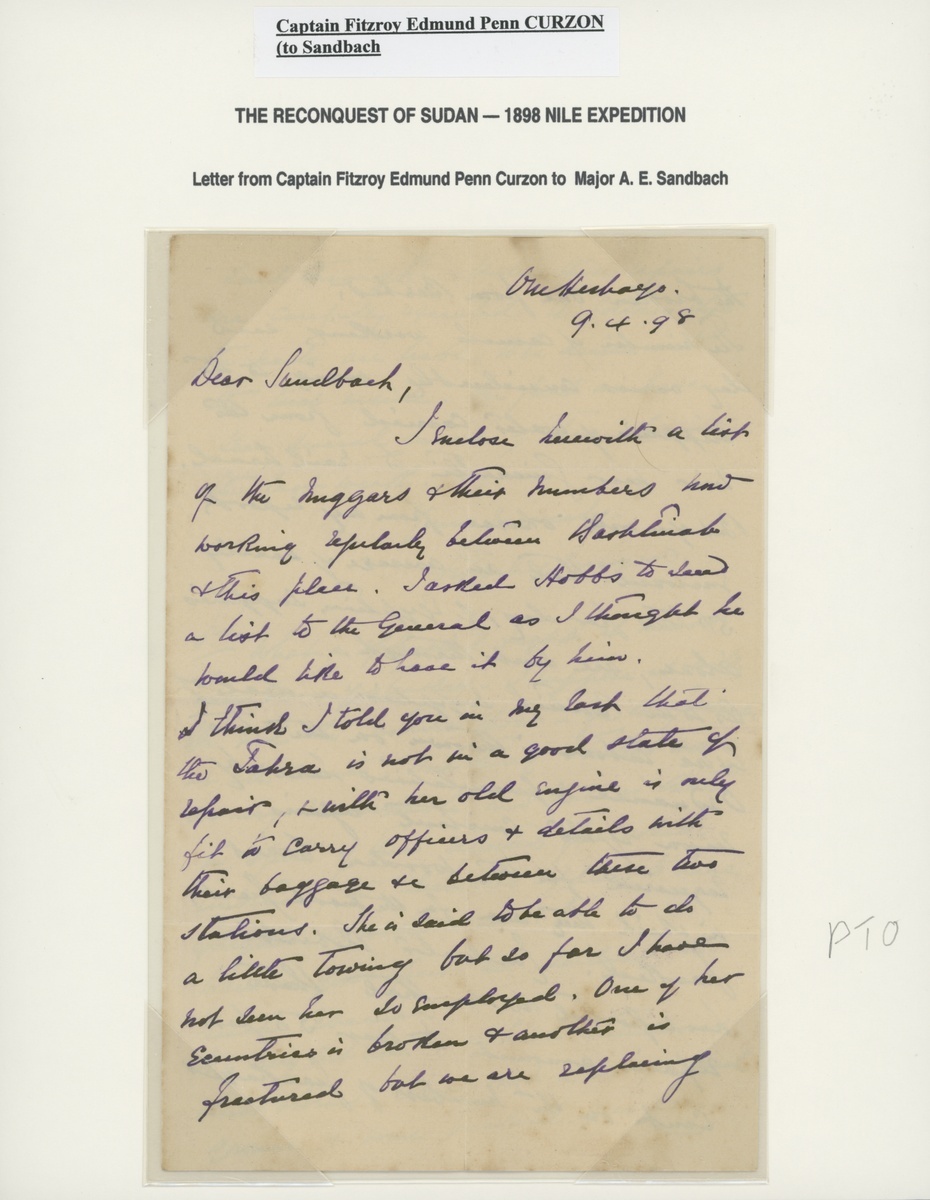 Captain Fitzroy Edmund Penn CURZON
(to Sandbach
THE RECONQUEST OF SUDAN — 1898 NILE EXPEDITION
Letter from Captain Fitzroy Edmund Penn Curzon to Major A. E. Sandbach
9.4.98
Dear Sandbach,
I enclose herewith a list
of the nuggars & their numbers now
working regularly between Bashtinab
& this place. I asked Hobbs to send
a list to the General as I thought he
would like to have it by him.
I think I told you in my last that
the Tahra is not in a good state of
repair, & with her old engine is only
fit to carry officers & details with
their baggage &c between these two
stations. She is said to be able to do
a little towing but so far I have
not seen her so employed. One of her
Eccentrics is broken & another is
fractured but we are replacing
PTO